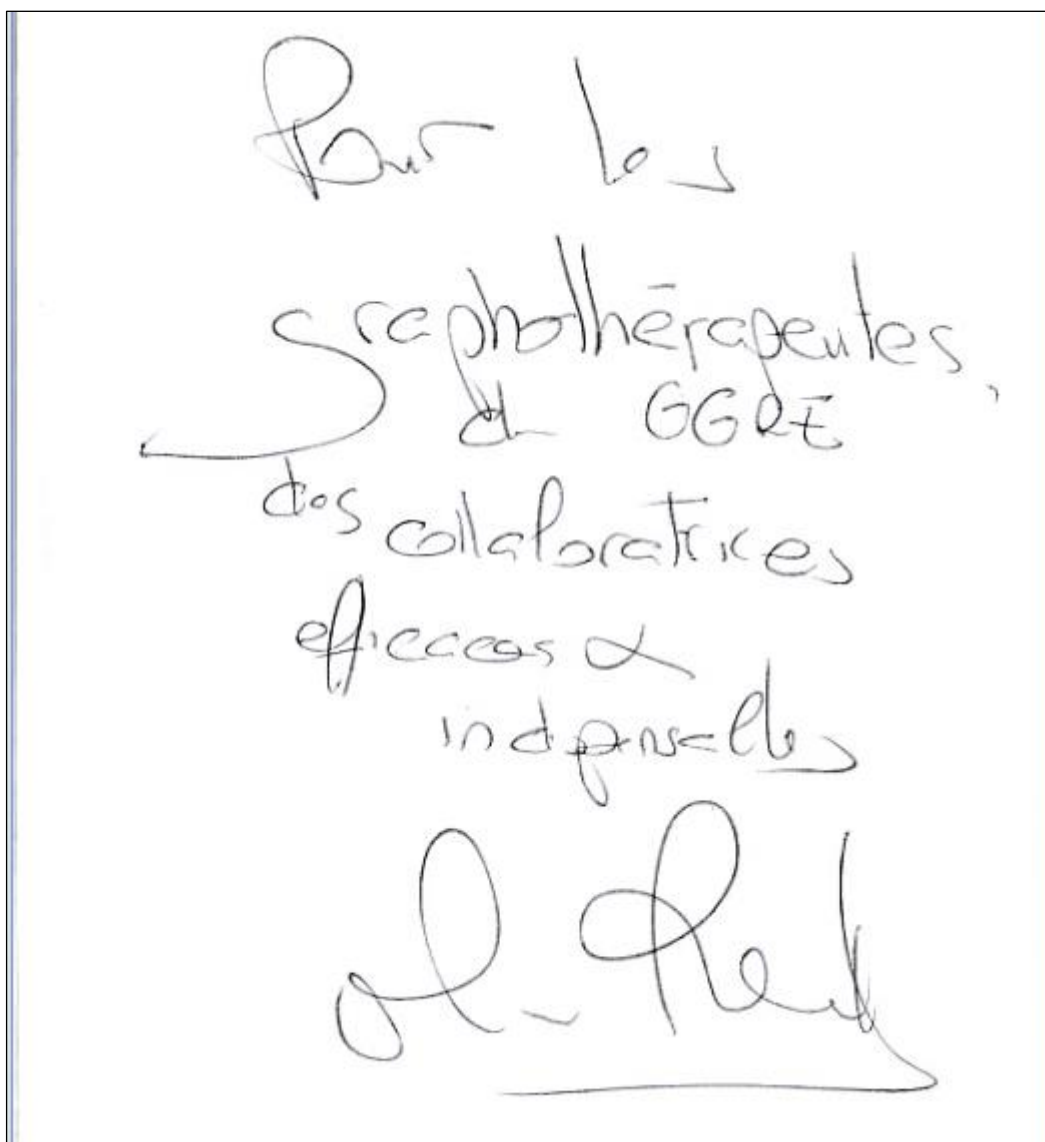 Pour les
graphothérapeutes,
du GGRE
des collaboratrices
efficaces &
indispensables